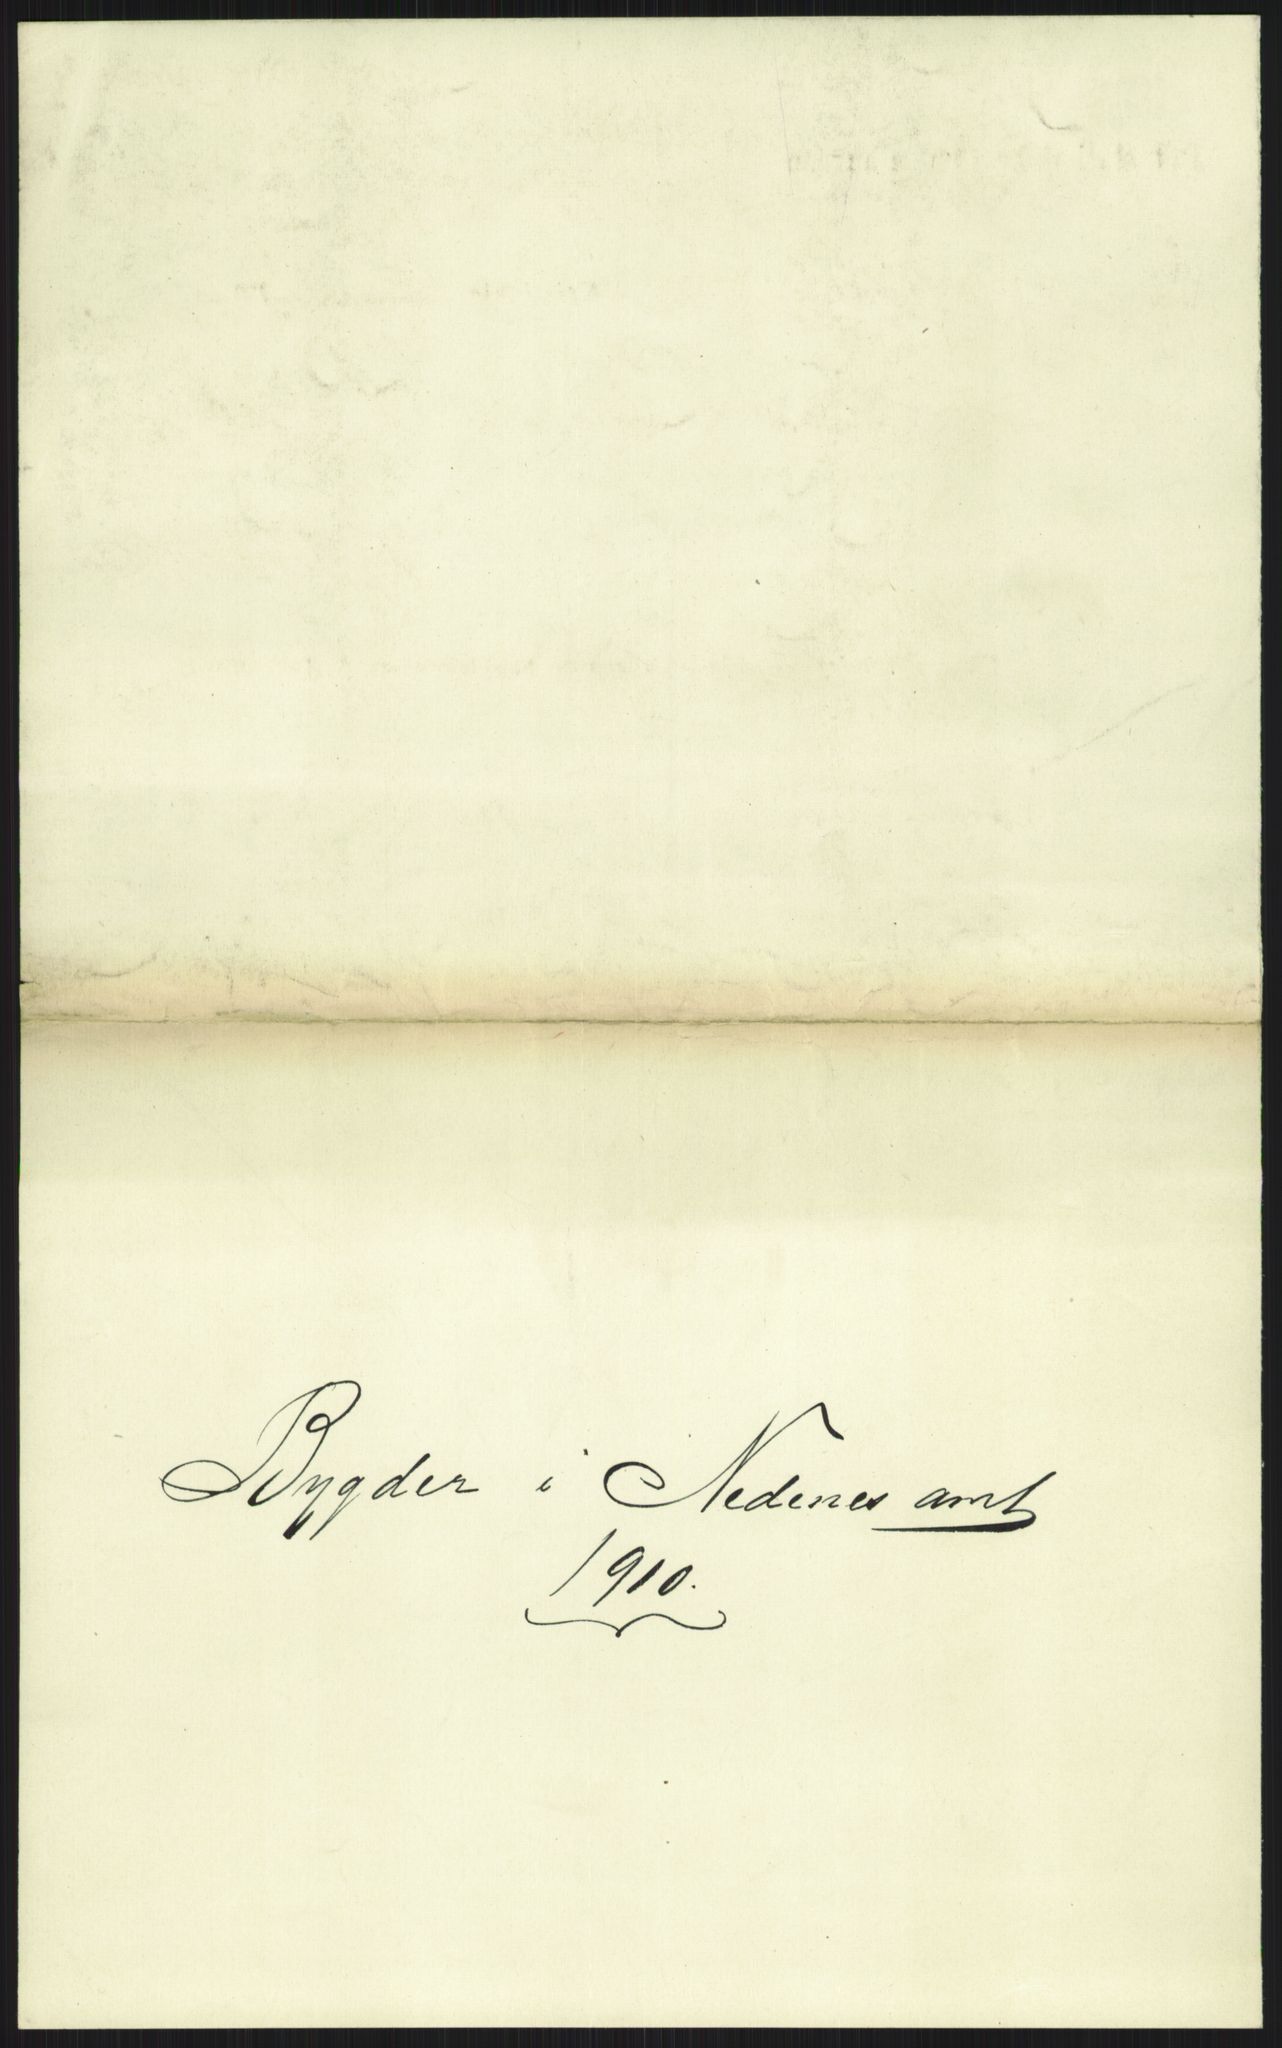 Bygder i Nedenes amt
1910.